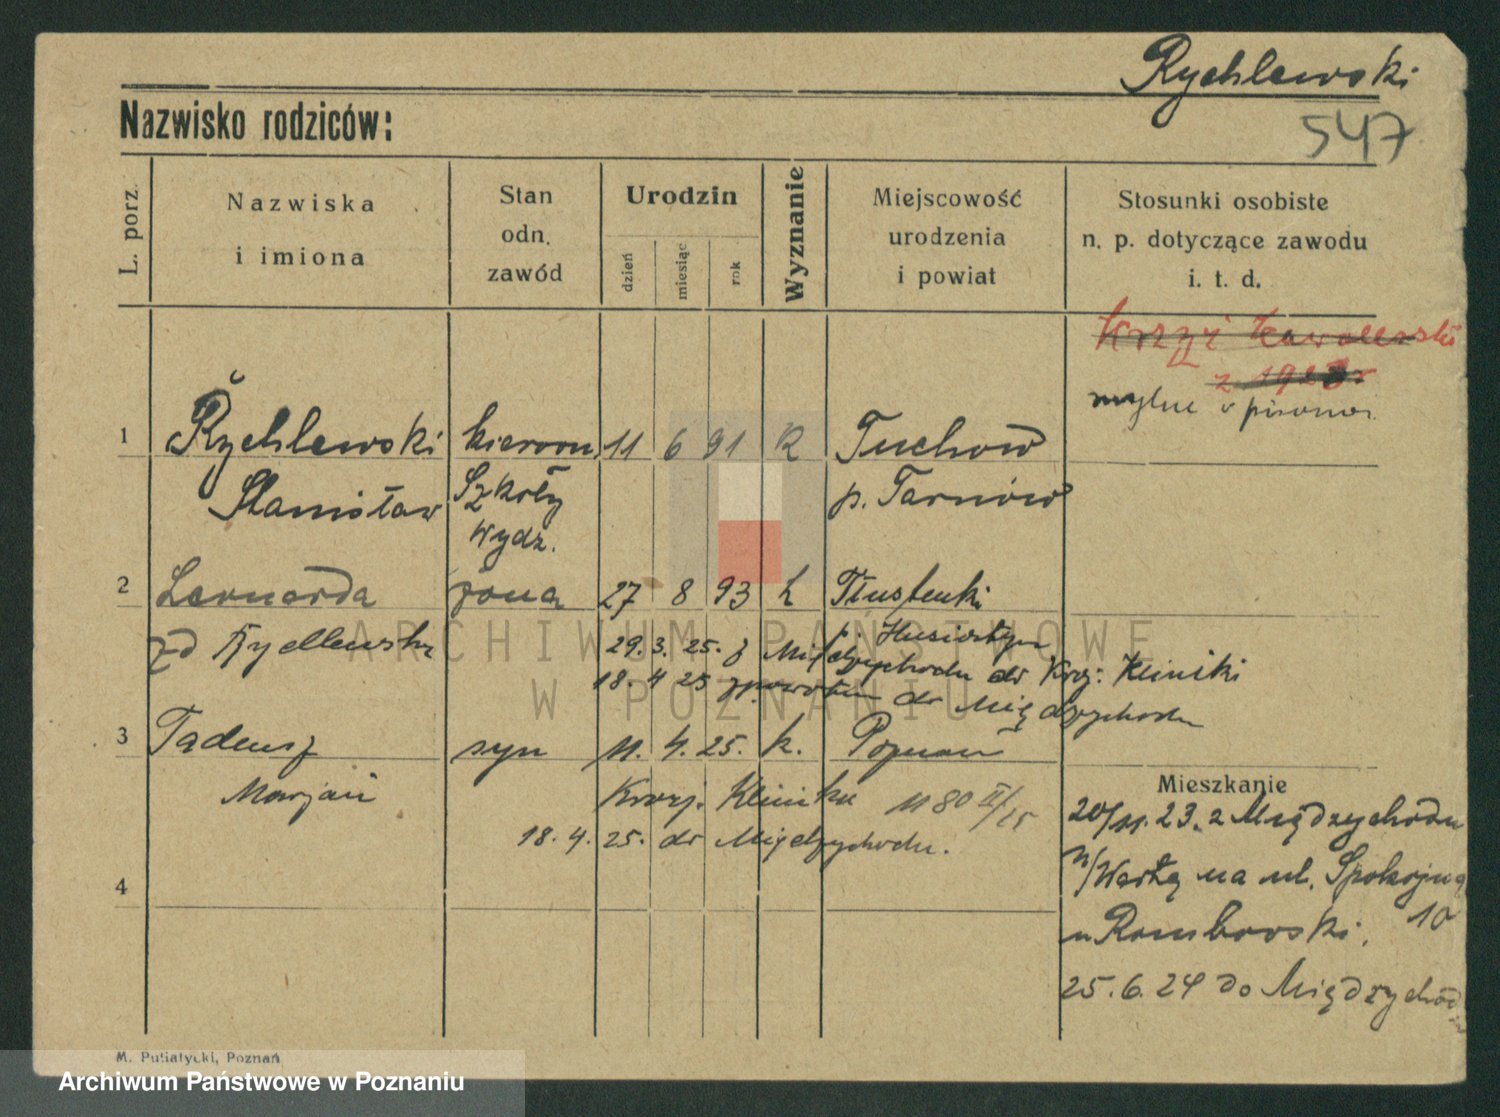 Rychlewski
547
Nazwisko rodziców:
L. porz.
Nazwiska
i imiona
Stan
odn.
zawód
Urodzin
dzień
miesiąc
rok
Wyznanie
Miejscowość
urodzenia
i powiat
Stosunki osobiste
n. p. dotyczące zawodu
i. t. d.
z 1923 r
mylne
1 Rychlewski kierown. 11 6 91 K Tuchów
Stanisław Szkoły p. Tarnów
wydz.
2 Leonarda żona 27 8 93 k
p. Husiatyn
29. 3. 25. z Międzychodu do Kraj. Kliniki
18. 4 25 zpowrotem do Międzychodu
3 Tadeusz syn 11. 4. 25. k. Poznań
Marjan Kraj. Klinika 1180 II/25
18. 4. 25. do Międzychodu.
4
Mieszkanie
20/11. 23. z Międzychodu
n/Wartą na ul. Spokojną
10
u Rombowski.
25. 6. 24 do Międzychodu
M. Putiatycki, Poznań
ARCHIWUM PAŃSTWOWE
W POZNANIU
Archiwum Państwowe w Poznaniu